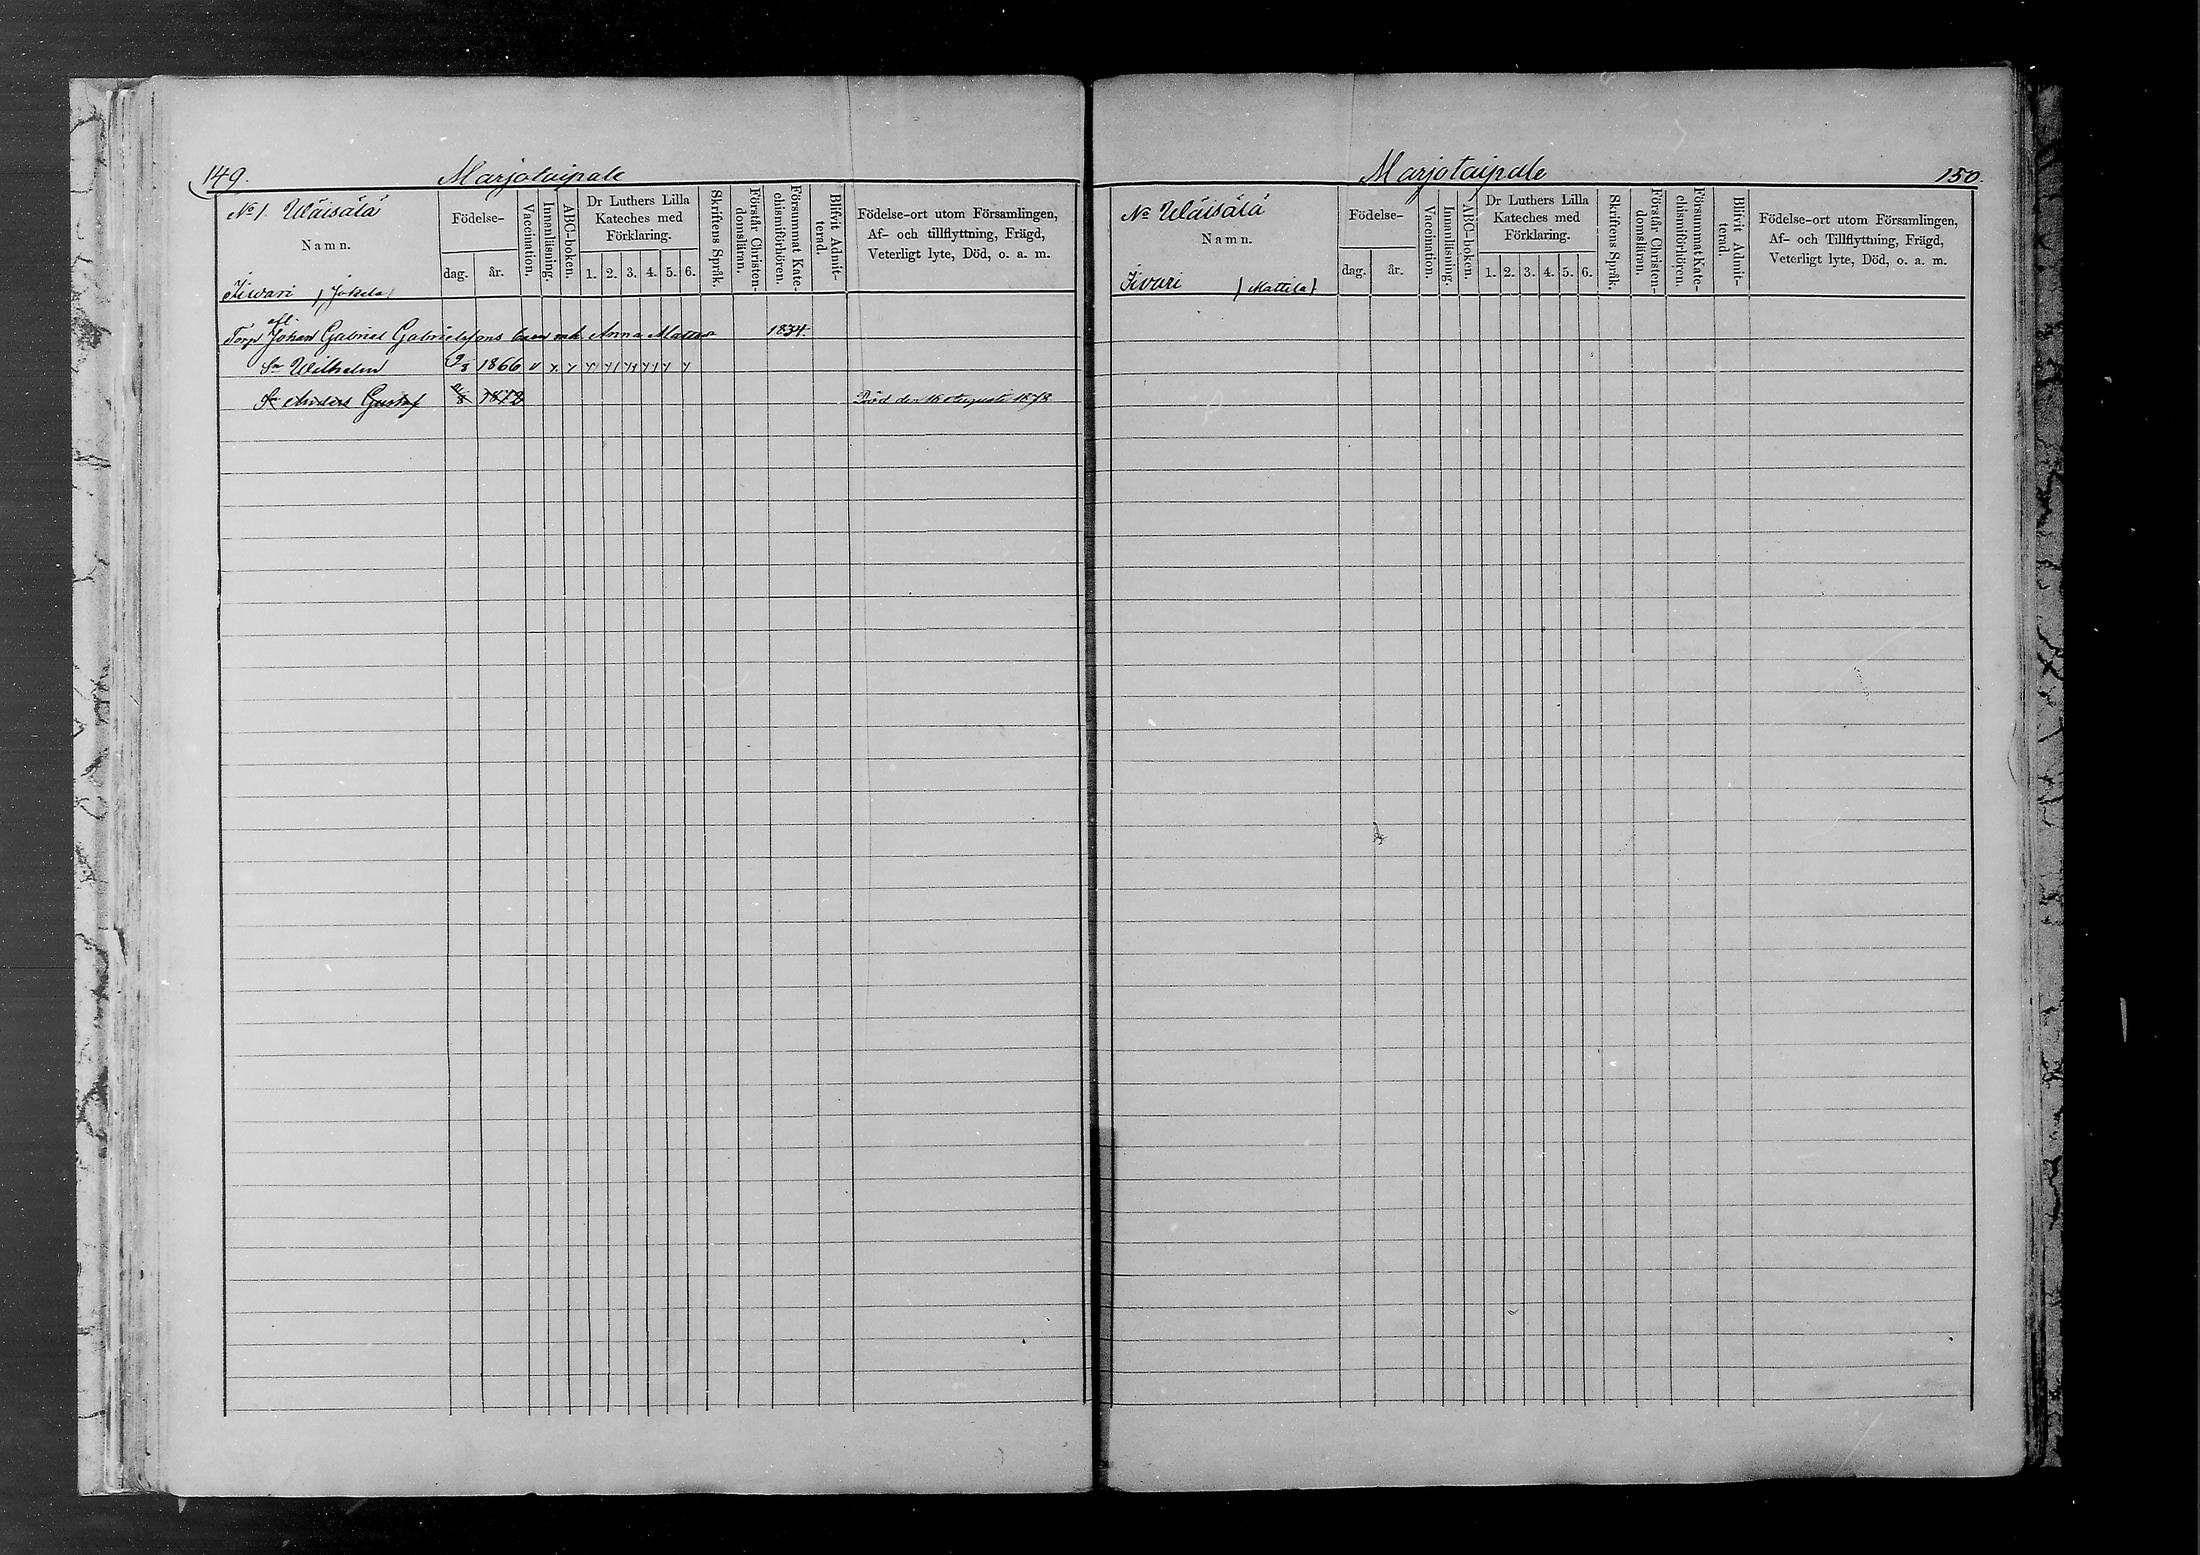 149.
Marjotaipale
No 1. Wäisälä
Namn.
Iiwari (Jokela)
Födelse-
dag.
år.
Vaccination.
Innanläsning.
ABC-boken.
Dr Luthers Lilla
Kateches med
Förklaring.
1. 2. 3. 4. 5. 6.
Skriftens Språk.
Förstår Christen-
domsläran.
Försummat Kate-
chismiförhören.
Blifvit Admit-
terad.
Födelse-ort utom Församlingen,
Af- och tillflyttning, Frägd,
Veterligt lyte, Död, o. a. m.
Torp Johan Gabriel Gabrielssons Anna 1834.
Sn Wilhelm 1866
Sn Anders Gustaf 1878 Död den 16 Augusti 1878
Marjotaipale
150.
No Wäisälä
Namn.
Iivari (Mattila)
Födelse-
dag.
år.
Vaccination.
Innanläsning.
ABC-boken.
Dr Luthers Lilla
Kateches med
Förklaring.
1. 2. 3. 4. 5. 6.
Skriftens Språk.
Förstår Christen-
domsläran.
Försummat Kate-
chismiförhören.
Blifvit Admit-
terad.
Födelse-ort utom Församlingen,
Af- och Tillflyttning, Frägd,
Veterligt lyte, Död, o. a. m.